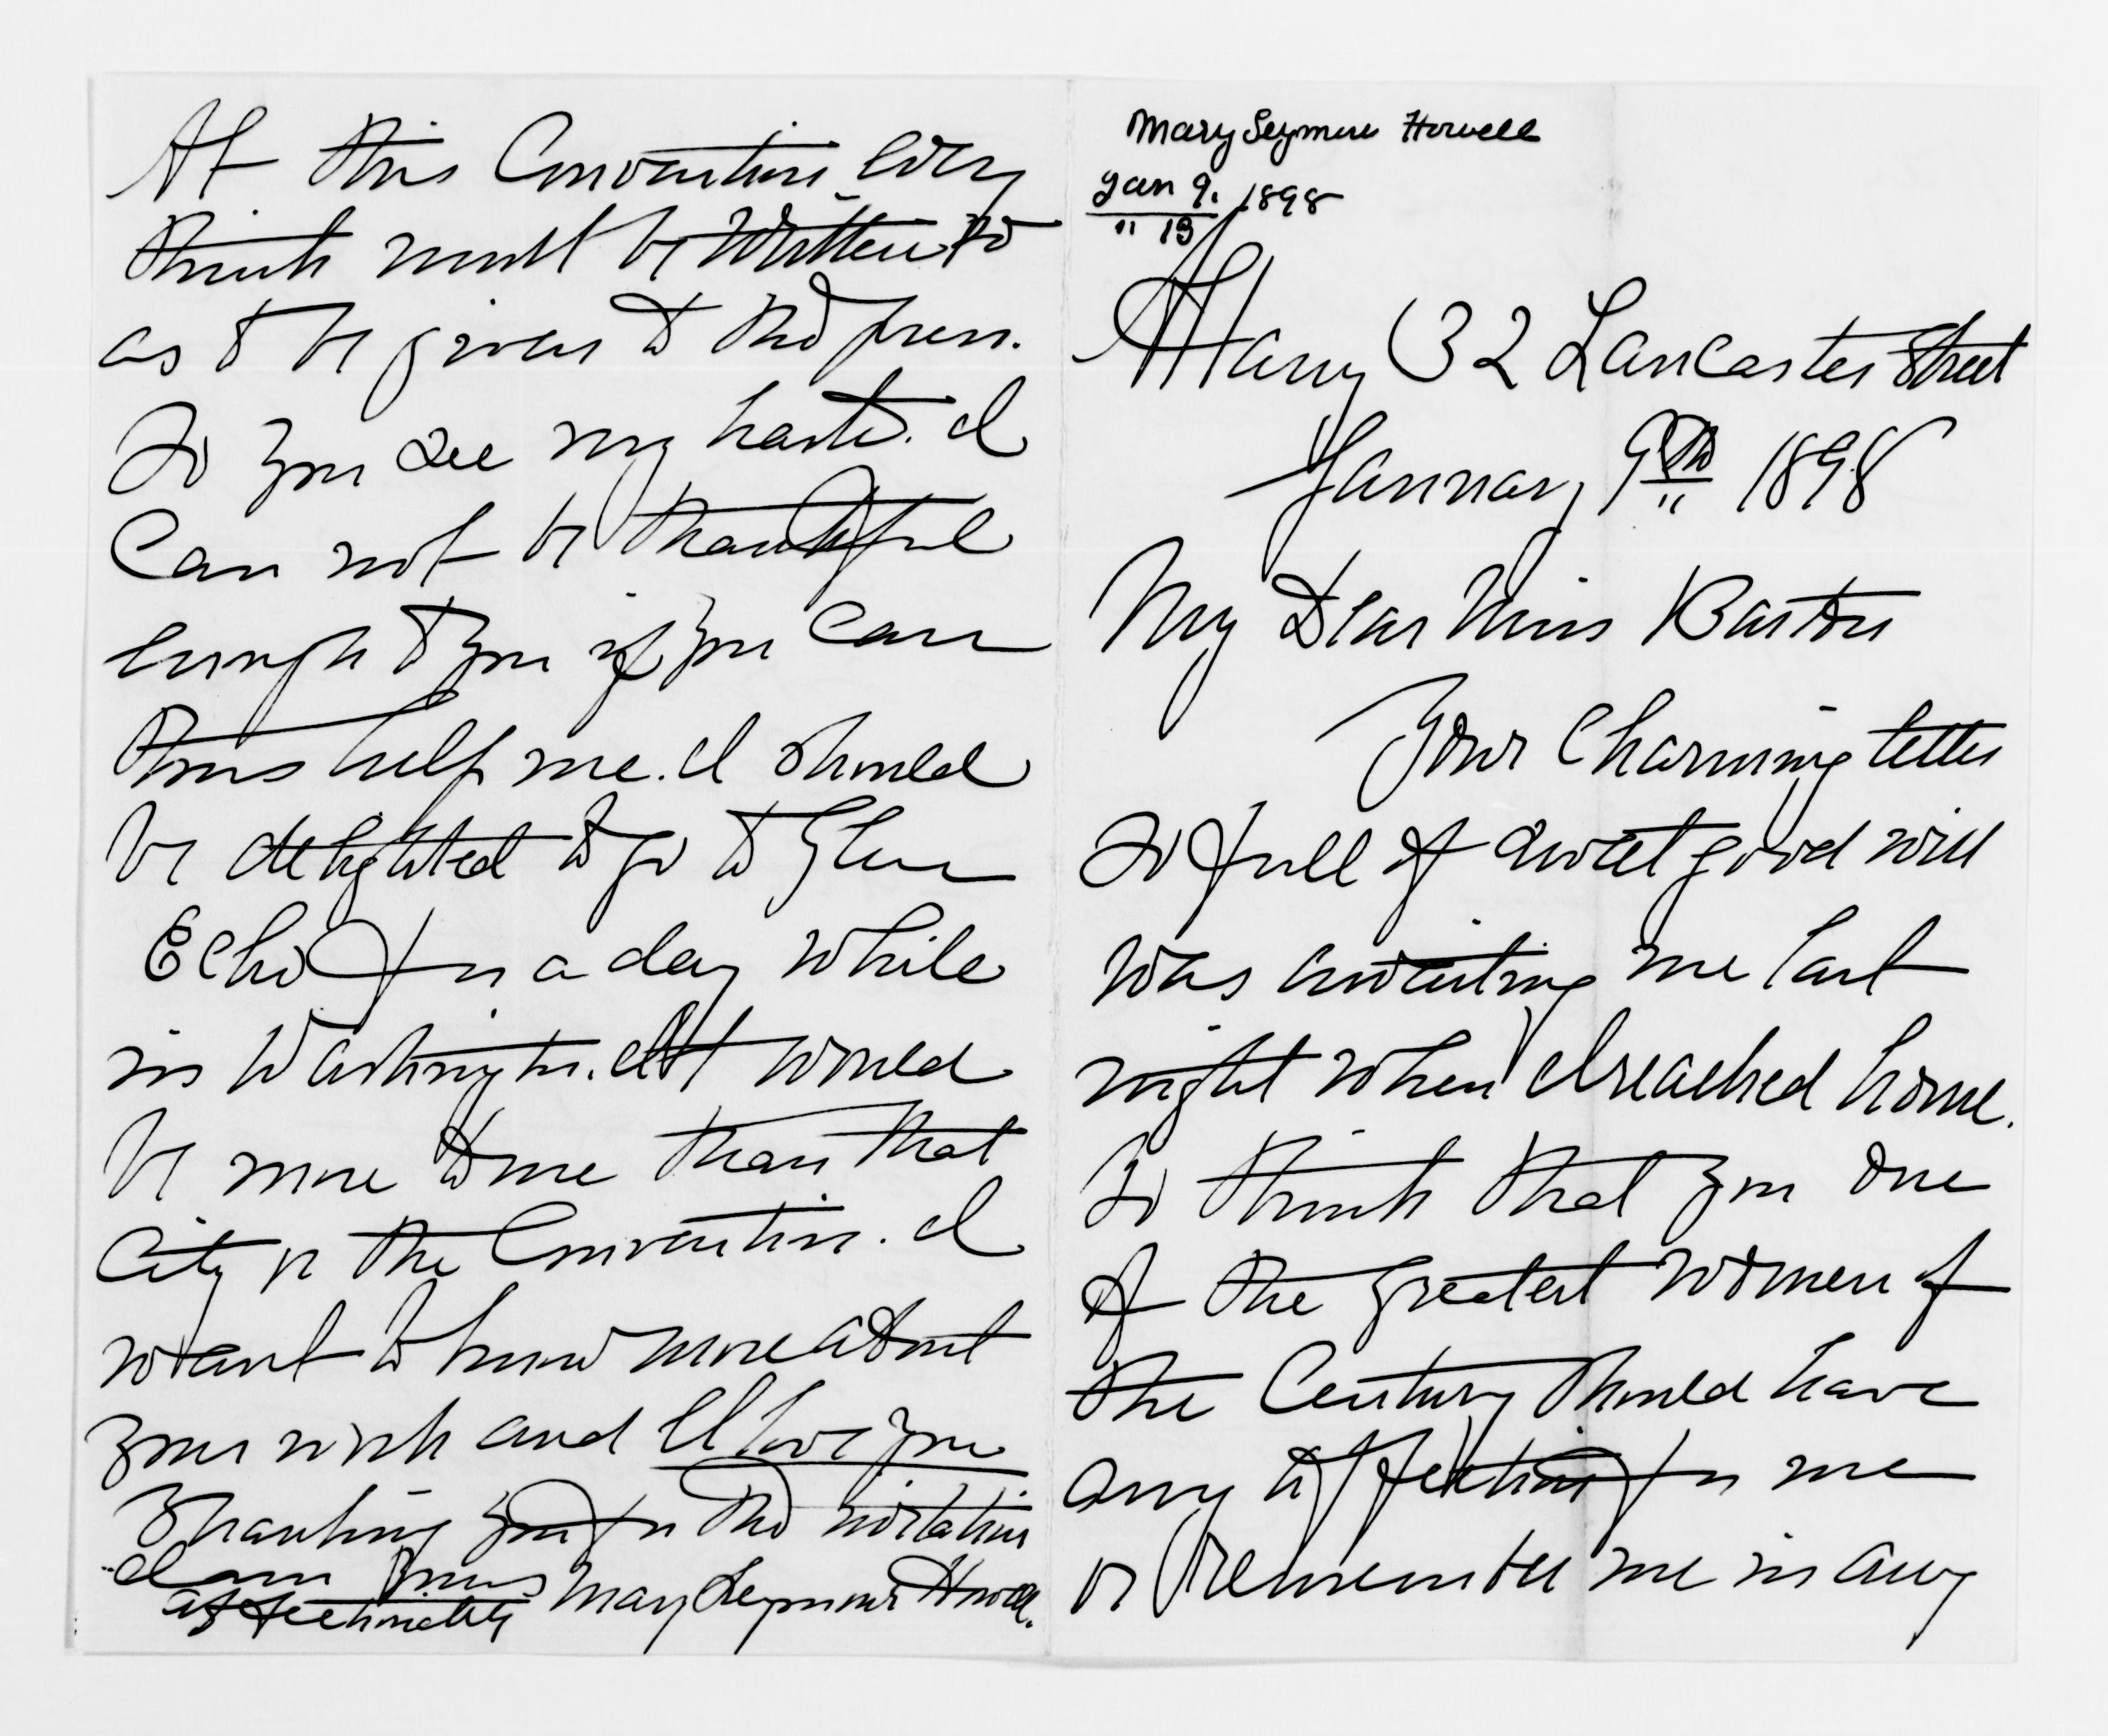 At this Convention every
think must be written so
as to be given to the press.
So you see my haste. I
can not be thankful
enough to you if you can
thus help me. I should
be delighted to go to Glen
Echo for a day while
in Washington. It would
be more to me than that
City or the Convention. I
want to know more about
your work and I love you
Thanking you for the invitation
I am yours
affectionately Mary Seymour Howell.
Mary Seymour Howell
Jan 9. 1898
" 13
Albany 32 Lancaster Street
January 9th 1898
My Dear Miss Barton
Your charming letter
so full of sweet good will
was awaiting me last
night when I reached home.
To think that you one
of the greatest women of
the Century should have
any affection for me
or remember me in any